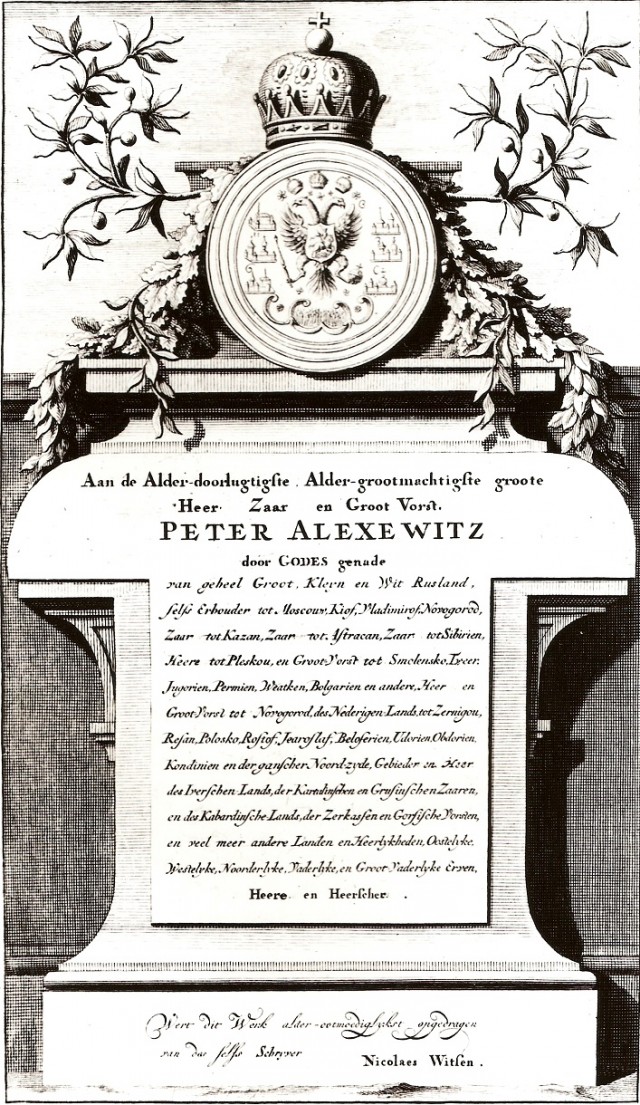 Aan de Alder-doorlugtigste, Alder-grootmachtigste groote
Heer Zaar en Groot Vorst.
PETER ALEXEWITZ
door GODES genade
van geheel Groot, Kleyn en Wit Rusland,
selfs Erhouder tot Moscouw, Kiof, Vladimirof, Novogorod,
Zaar tot Kazan, Zaar tot Astracan, Zaar tot Sibirien,
Heere tot Pleskou, en Groot-Vorst tot Smolensko, Tveer,
Jugorien, Permien, Weatken, Bolgarien en andere, Heer en
Groot Vorst tot Novogorod, des Nederigen-Lands, tot Zernigou,
Resan, Polosko, Rostof, Jearoslaf, Beloserien, Udorien, Obdorien,
Kondinien en der ganscher Noord-zyde, Gebieder en Heer
des Iverschen-Lands, der Kartalinschen en Grusinschen Zaaren,
en des Kabardinsche-Lands, der Zerkassen en Gorsische Vorsten,
en veel meer andere Landen en Heerlykheden, Oostelyke,
Westelyke, Noorderlyke, Vaderlyke, en Groot-Vaderlyke Erven,
Heere en Heerscher.
Wert dit Werk alder-ootmoediglykst opgedragen
van des selfs Schryver Nicolaes Witsen.